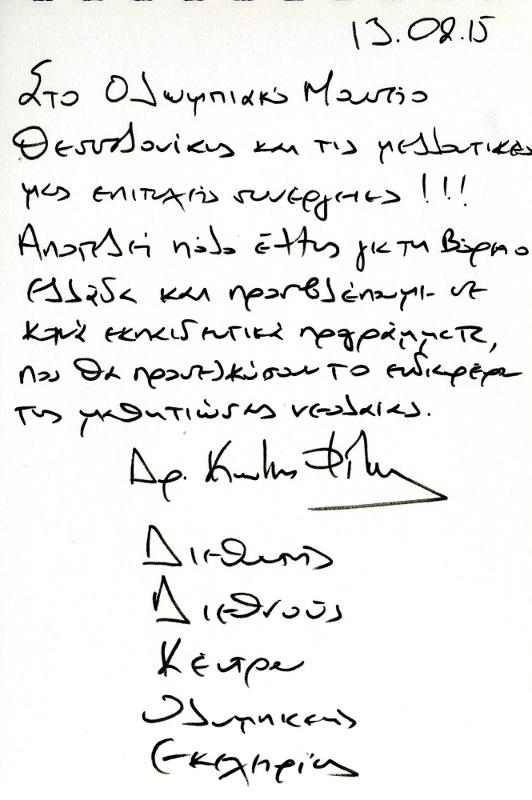 13.02.15
Στο Ολυμπιακό Μουσείο
Θεσσαλονίκης και τις μελλοντικές
μας επιτυχείς συνέργειες!!!
Αποτελεί πόλο έλξης για τη Βόρειο
Ελλάδα και προσβλέπουμε σε
κοινά εκπαιδευτικά προγράμματα,
που θα προσελκύσουν το ενδιαφέρον
της μαθητιώσας νεολαίας.
Δρ. Κωνσ
Διευθυντής
Διεθνούς
Κέντρου
Ολυμπιακής
Εκεχειρίας